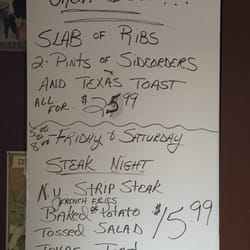 SLAB OF RIBS
2-PINTS OF SIDEORDERS
AND TEXAS TOAST
ALL FOR.. $25.99
5:00 - 8:00 - FRIDAY & SATURDAY
STEAK NIGHT
N.Y. STRIP STEAK
FRENCH FRIES OR
BAKED POTATO $15.99
TOSSED SALAD
TEXAS